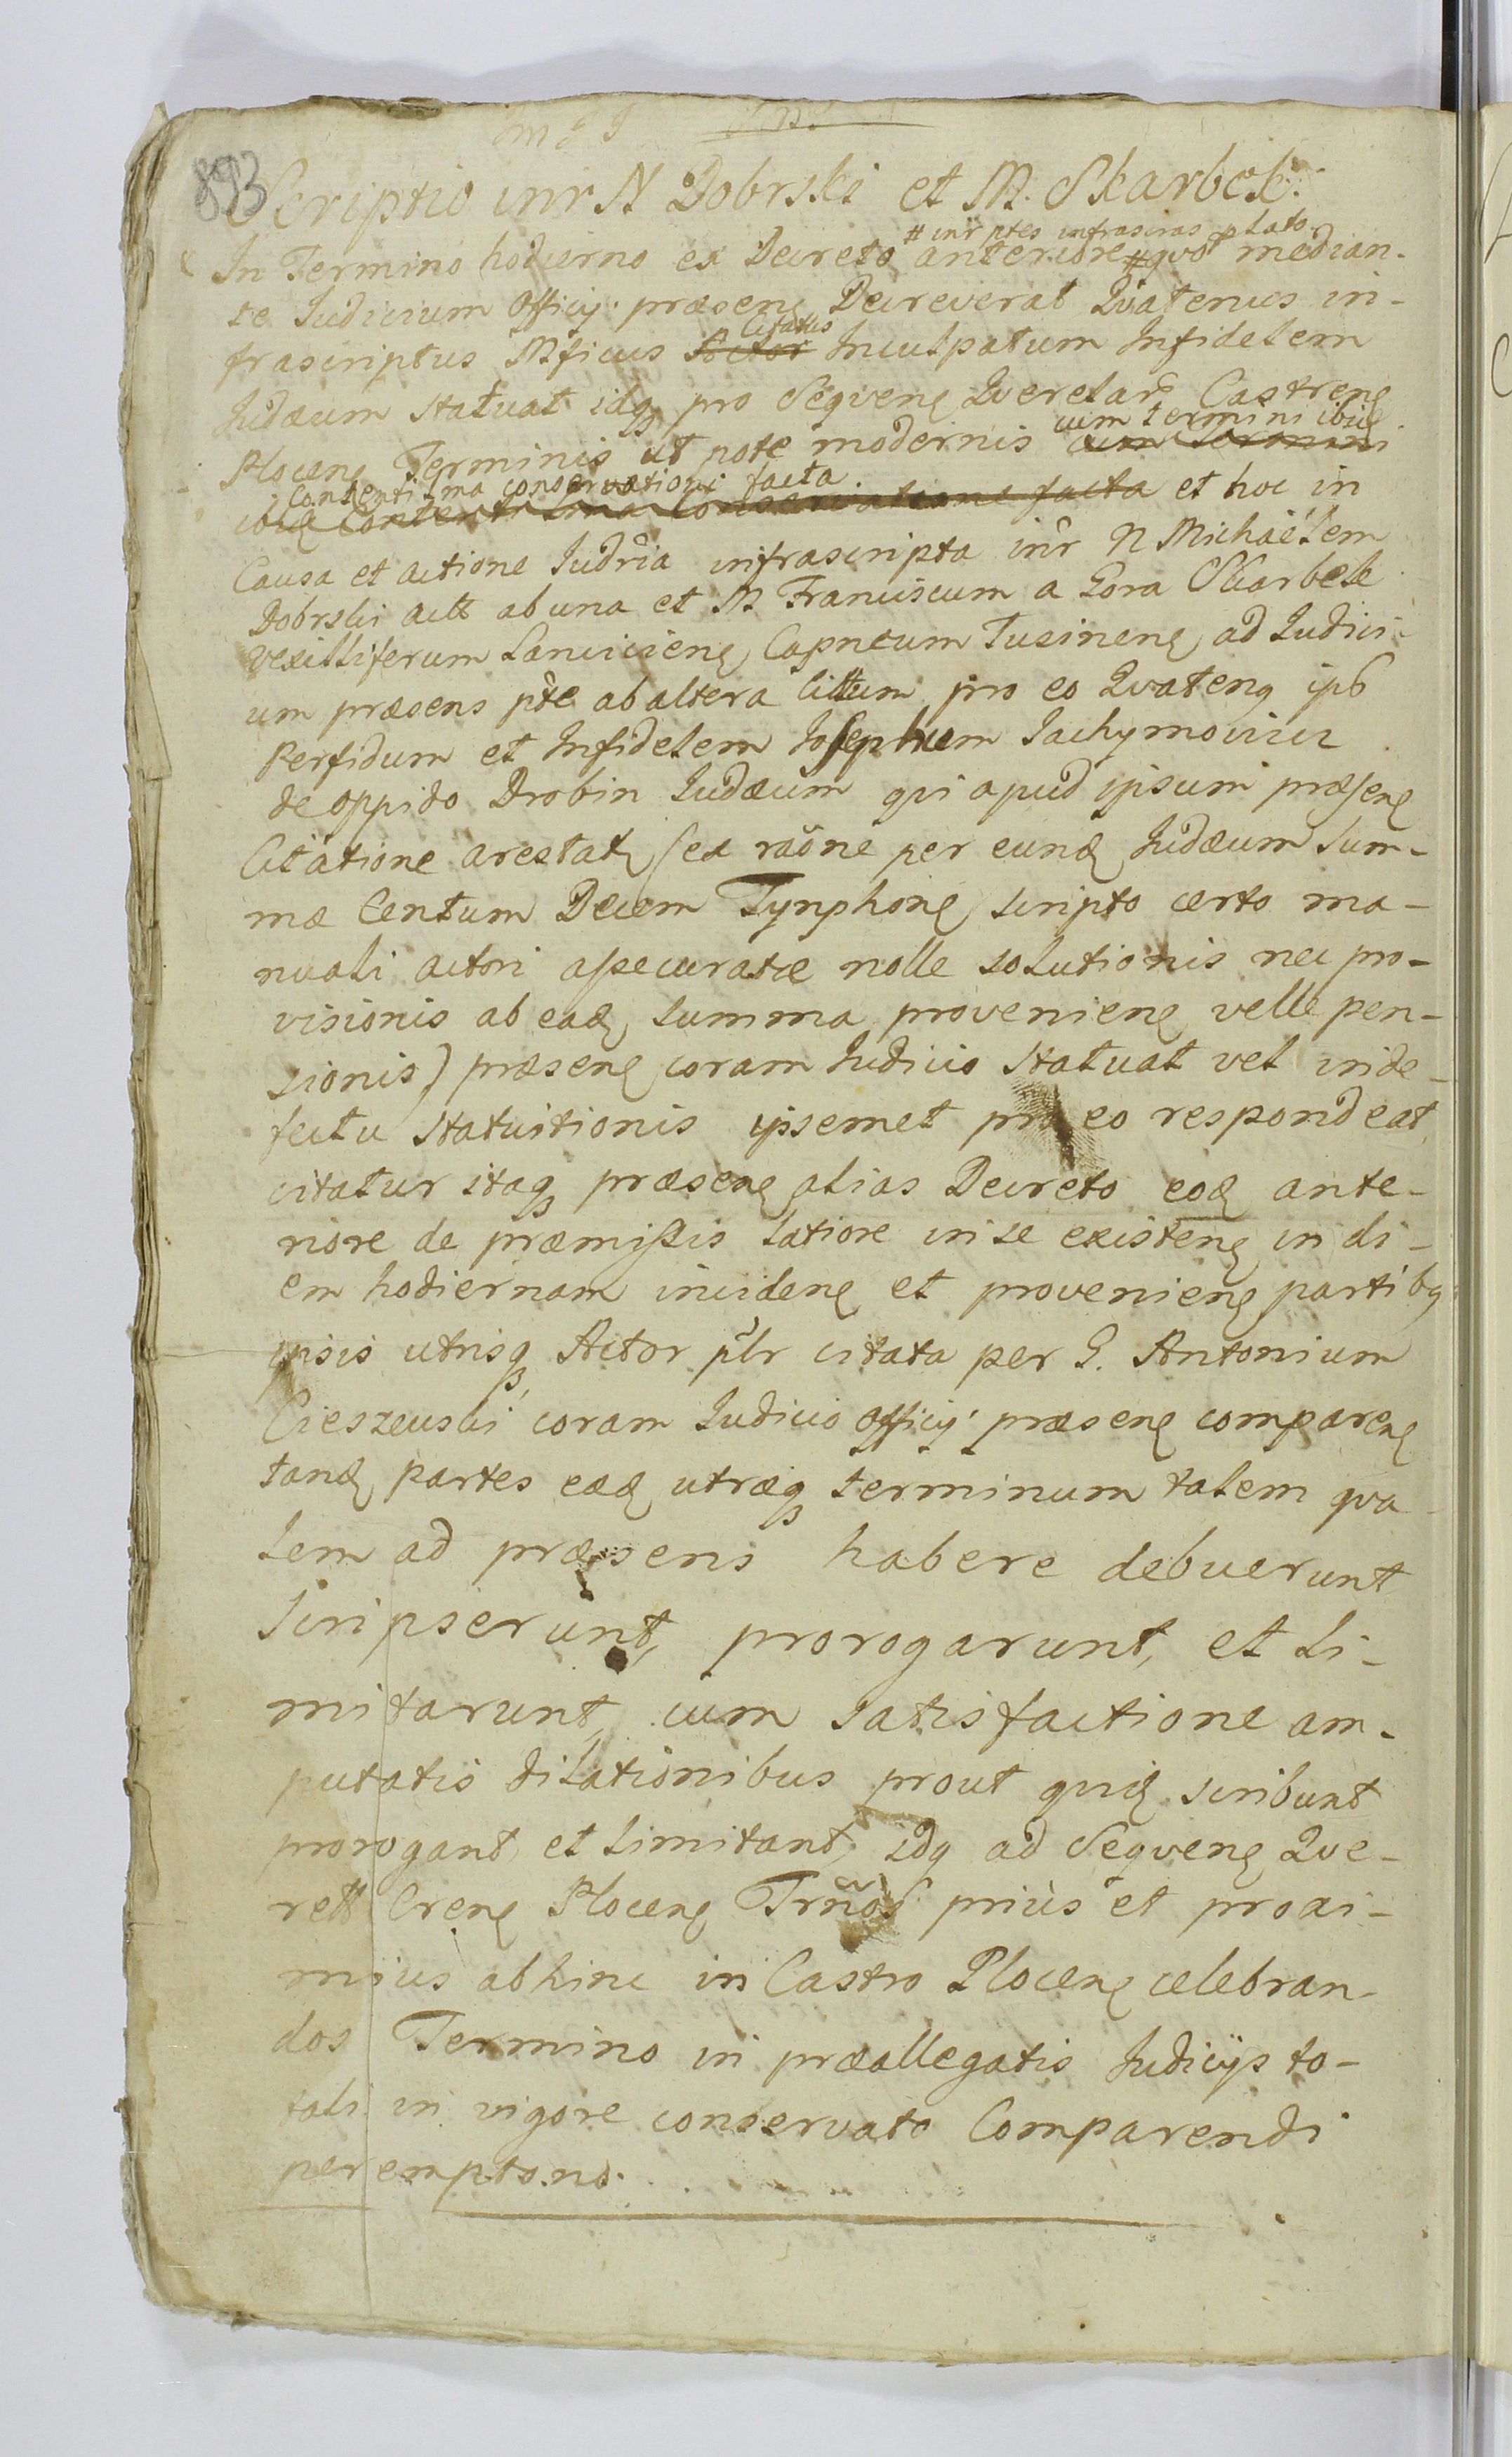 893
Scriptio inr N Dobrski et M. Skarbek.
# inr ptes infrascras lato
In Termino hodierno ex Decreto anteriore # quo median-
te Iudicium Officij praesens Decreverat Quatenus in-
Citatus
frascriptus Mficus Actor Inculpatum Infidelem
Iudaeum statuat idq pro Sequens Querelar Castrens
cum termini ibid
Plocens Terminis ut pote modernis cum termini
contenti conservationi facta
ibid contenti conservatione facta et hoc in
Causa et actione Iudria infrascripta inr N Michaëlem
Dobrski act ab una et M Franciscum a Gora Skarbek
vexilliferum Lanciciens Capneum Tusinens ad Iudici-
um praesens pte ab altera Cittum pro eo Quatenq ips
Perfidum et Infidelem Josephum Jachymowicz
de oppido Drobin Iudaeum qui apud ipsum praesens
Citatione arestat (ex raõne per eund Iudaeum sum-
mae Centum Decem Tynphons scripto certo ma-
nuali actori assecuratae nolle solutionis nec pro-
visionis ab ead summa proveniens velle pen-
sionis) praesens coram Iudicio statuat vel in de-
fectu statuitionis ipsemet pro eo respondeat
citatur itaq praesens alias Decreto eod ante-
riore de praemissis latiore in se existens in di-
em hodiernam incidens et proveniens partibq
ipsis utrisq Actor plr citata per G. Antonium
Cieszewski coram Iudicio Officij praesens comparens
tand partes eaed utraeq terminum talem qua-
lem ad praesens habere debuerunt
scripserunt, prorogarunt, et li-
mitarunt, cum satisfactione am-
putatis dilationibus prout quid scribunt
prorogant et limitant, idq ad Sequens Que-
rell Crens Plocens Trños prius et proxi-
mius abhinc in Castro Plocens celebran-
dos Termino in praeallegatis Iudicijs to-
tali in vigore conservato Comparendi
peremptorio.